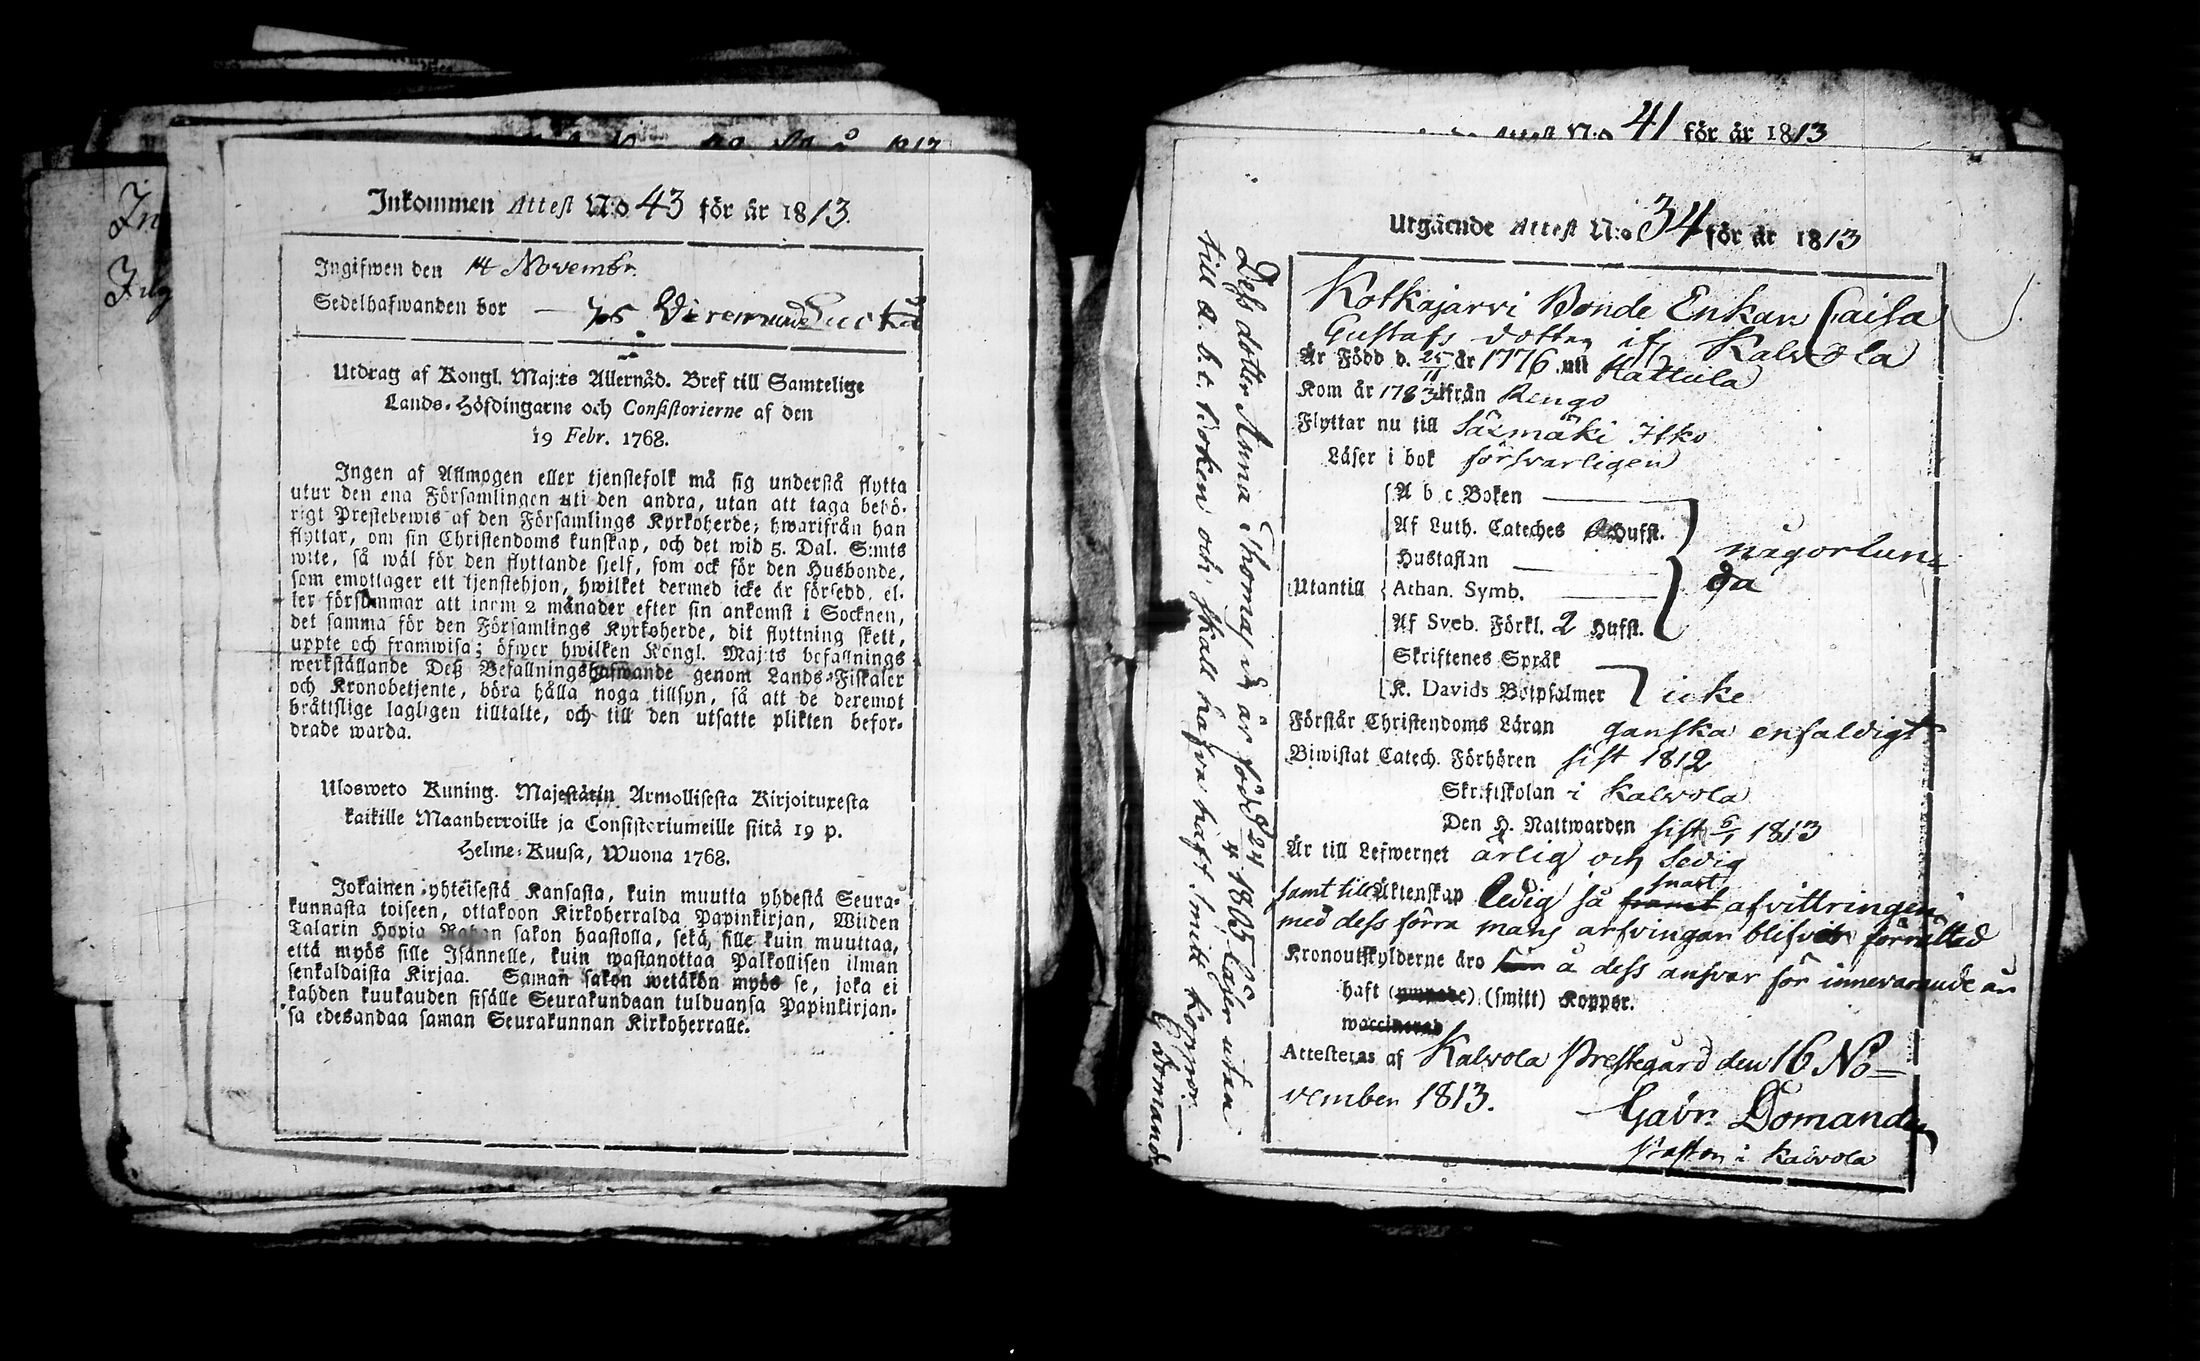 Inkommen Attest N:o 43 för år 1813.
Ingifwen den 14 Novembr.
Sedelhafwanden bor —
Utdrag af Kongl. Maj:ts Allernåd. Bref till Samtelige
Lands-Höfdingarne och Consistorierne af den
19 Febr. 1768.
Ingen af Allmogen eller tjenstefolk må sig understå flytta
utur den ena Församlingen uti den andra, utan att taga behö-
rigt Prestebewis af den Församlings Kyrkoherde; hwarifrån han
flyttar, om sin Christendoms kunskap, och det wid 5. Dal. S:mts
wite, så wäl för den flyttande sjelf, som ock för den Husbonde,
som emottager ett tjenstehjon, hwilket dermed icke är försedd, el-
ler försummar att inom 2 månader efter sin ankomst i Socknen,
det samma för den Församlings Kyrkoherde, dit flyttning skett,
uppte och framwisa; öfwer hwilken Kongl. Maj:ts befallnings
werkställande Deß Befallningshafwande genom Lands-Fiskaler
och Kronobetjente, böra hålla noga tillsyn, så att de deremot
bråttslige lagligen tilltalte, och till den utsatte plikten befor-
drade warda.
Ulosweto Kuning. Majestätin Armollisesta Kirjoituxesta
kaikille Maanherroille ja Consistoriumeille siitä 19 p.
Helme-Kuusa, Wuona 1768.
Jokainen yhteisestä Kansasta, kuin muutta yhdestä Seura-
kunnasta toiseen, ottakoon Kirkoherralda Papinkirjan, Wiiden
Talarin Hopia Rahan sakon haastolla, sekä, sille kuin muuttaa,
että myös sille Isännelle, kuin wastanottaa Palkollisen ilman
senkaldaista Kirjaa. Saman sakon wetäkön myös se, joka ei
kahden kuukauden sisälle Seurakundaan tulduansa Papinkirjan-
sa edesandaa saman Seurakunnan Kirkoherralle.
41 för år 1813
Utgående Attest N:o 34 för år 1813
Kotkajarvi Bonde Enkan Caisa
Gustafs dotter if Kalvola
Är Född d. 25/11 år 1776 uti Hattula
Kom år 1783 ifrån Rengo
Flyttar nu till Säxmäki
Läser i bok försvarligen
A b c Boken
Af Luth. Cateches Hufst.
Hustaflan
någorlun-
da
Utantill Athan. Symb.
Af Sveb. Förkl. 2 Hufst.
Skriftenes Språk
K. Davids Botpsalmer icke
Förstår Christendoms Läran ganska enfaldigt
Biwistat Catech. Förhören sist 1812
Skriftskolan i Kalvola
Den H. Nattwarden sist 6/1 1813
Är till Lefwernet ärlig och sedig
samt till Äktenskap ledig så snart afvittringen
med dess förra mans arfvingar blifvit förrättad
Kronoutskylderne äro å dess ansvar för innevarande år
haft (smitt) Koppor.
waccinerad
Attesteras af Kalvola Prestegård den 16 No-
vember 1813.
Gabr. Domander
Prosten i Kalvola
Dess dotter Anna Thomas dr är född 24/4 1805 läser utan
till a. b. c. boken och skall hafva haft smitt koppor.
G Domander